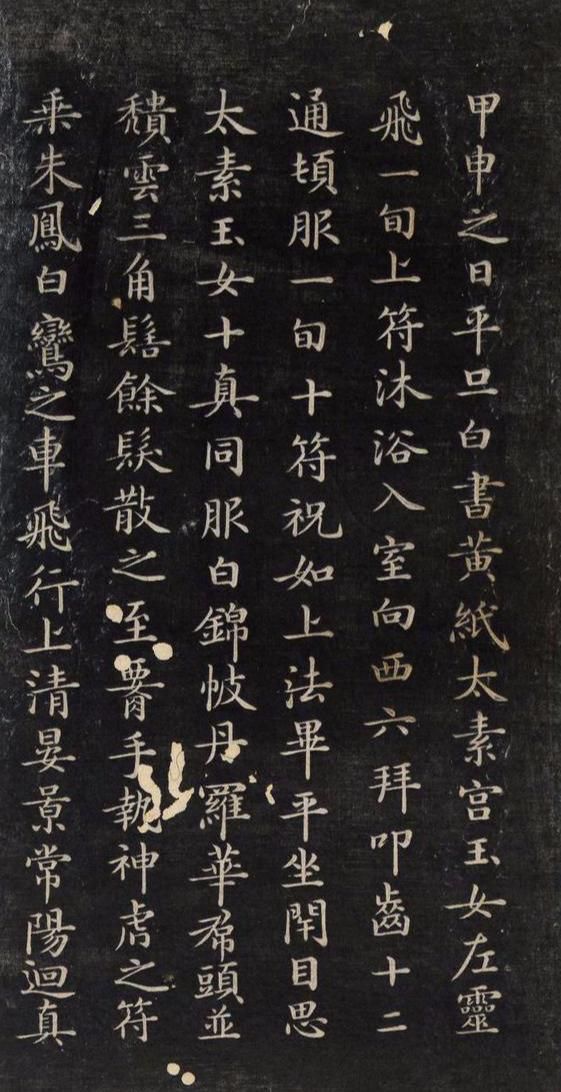 甲申之日平旦白書黃紙太素宮玉女左靈
飛一旬上符沐浴入室向西六拜叩齒十二
通頓服一旬十符祝如上法畢平坐閇目思
太素玉女十真同服白錦帔丹羅華帬頭並
頽雲三角髻餘髮散之至䙅手執神虎之符
乘朱鳳白鸞之車飛行上清晏景常陽迴真